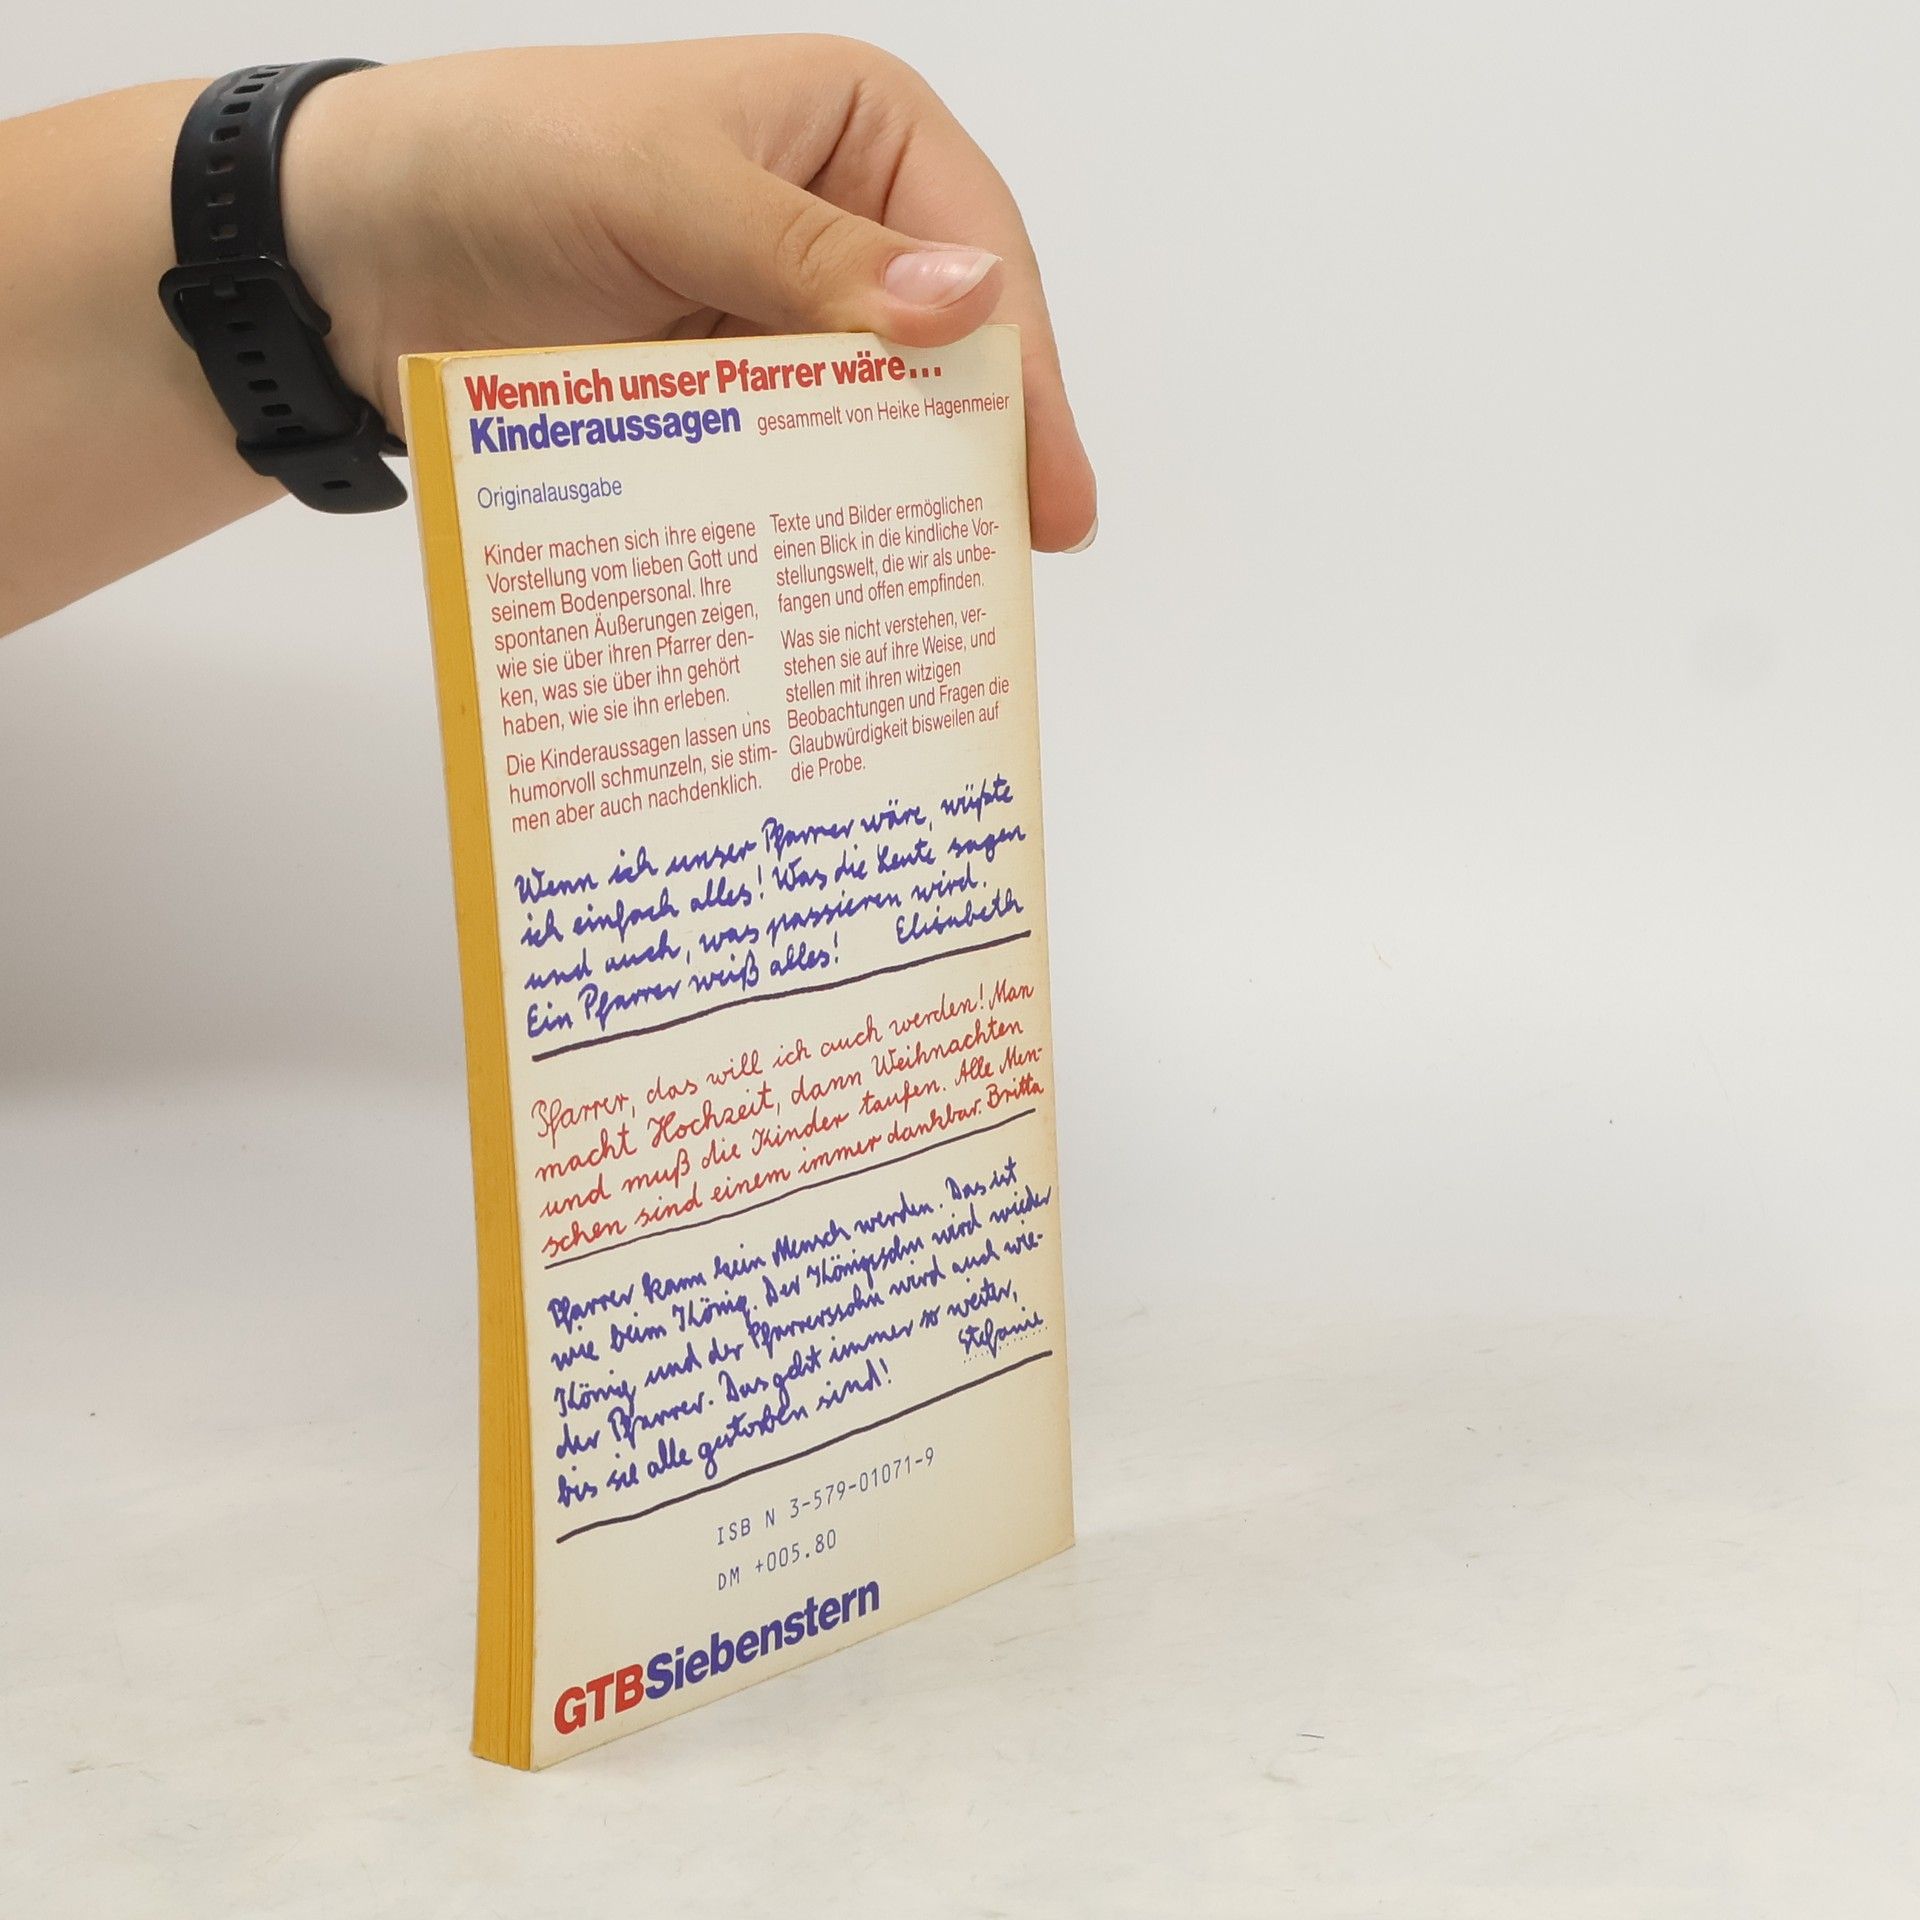 Wenn ich unser Pfarrer wäre...
Kinderaussagen gesammelt von Heike Hagenmeier
Originalausgabe
Kinder machen sich ihre eigene
Vorstellung vom lieben Gott und
seinem Bodenpersonal. Ihre
spontanen Äußerungen zeigen,
wie sie über ihren Pfarrer den-
ken, was sie über ihn gehört
haben, wie sie ihn erleben.
Die Kinderaussagen lassen uns
humorvoll schmunzeln, sie stim-
men aber auch nachdenklich.
Texte und Bilder ermöglichen
einen Blick in die kindliche Vor-
stellungswelt, die wir als unbe-
fangen und offen empfinden.
Was sie nicht verstehen, ver-
stehen sie auf ihre Weise, und
stellen mit ihren witzigen
Beobachtungen und Fragen die
Glaubwürdigkeit bisweilen auf
die Probe.
Wenn ich unser Pfarrer wäre, wüßte
ich einfach alles! Was die Leute sagen
und auch, was passieren wird.
Ein Pfarrer weiß alles! Elisabeth
Pfarrer, das will ich auch werden! Man
macht Hochzeit, dann Weihnachten
und muß die Kinder taufen. Alle Men-
schen sind einem immer dankbar. Britta
Pfarrer kann kein Mensch werden. Das ist
wie beim König. Der Königssohn wird wieder
König und der Pfarrerssohn wird auch wie-
der Pfarrer. Das geht immer so weiter,
bis sie alle gestorben sind! Stefanie
ISB N 3-579-01071-9
DM +005.80
GTBSiebenstern